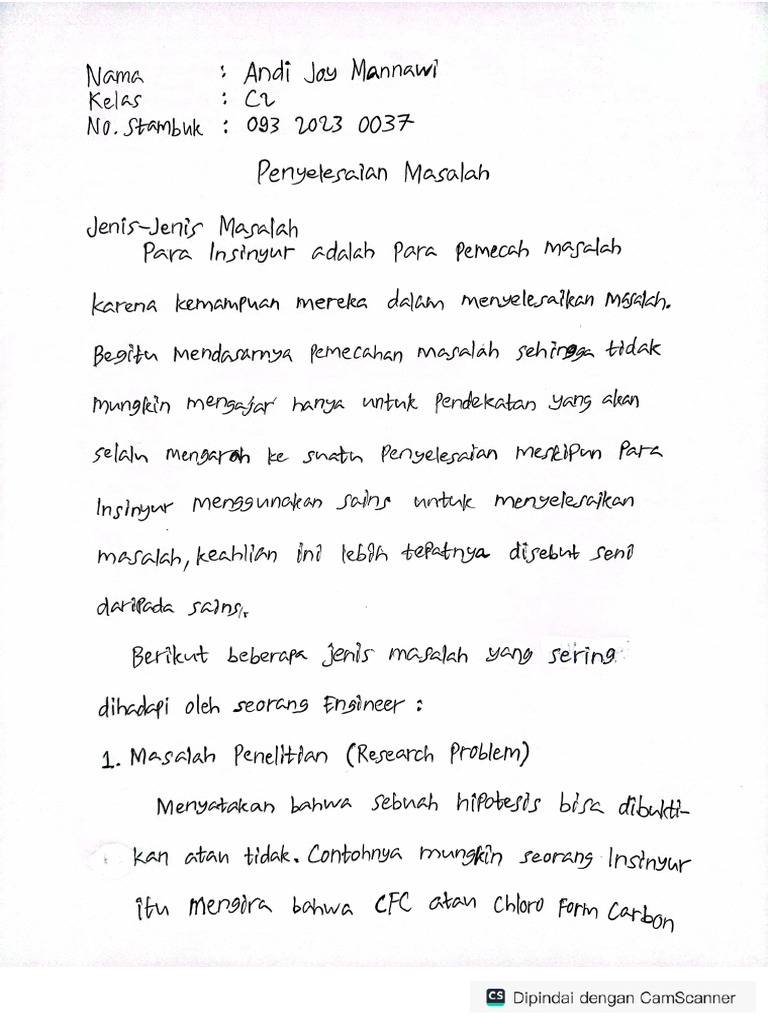 Nama : Andi Joy Mannawi
Kelas : C2
No. Stambuk : 093 2023 0037
Penyelesaian Masalah
Jenis-Jenis Masalah
Para Insinyur adalah Para Pemecah masalah
karena kemampuan mereka dalam menyelesaikan masalah.
Begitu Mendasarnya Pemecahan masalah sehingga tidak
mungkin mengajar hanya untuk Pendekatan yang akan
selalu mengarah ke suatu Penyelesaian meskipun Para
Insinyur menggunakan sains untuk menyelesaikan
masalah, keahlian ini lebih tepatnya disebut seni
daripada sains.
Berikut beberapa jenis masalah yang sering
dihadapi oleh seorang Engineer :
1. Masalah Penelitian (Research Problem)
Menyatakan bahwa sebuah hipotesis bisa dibukti-
kan atau tidak. Contohnya mungkin seorang Insinyur
itu Mengira bahwa CFC atau Chloro Form Carbon
CS Dipindai dengan CamScanner